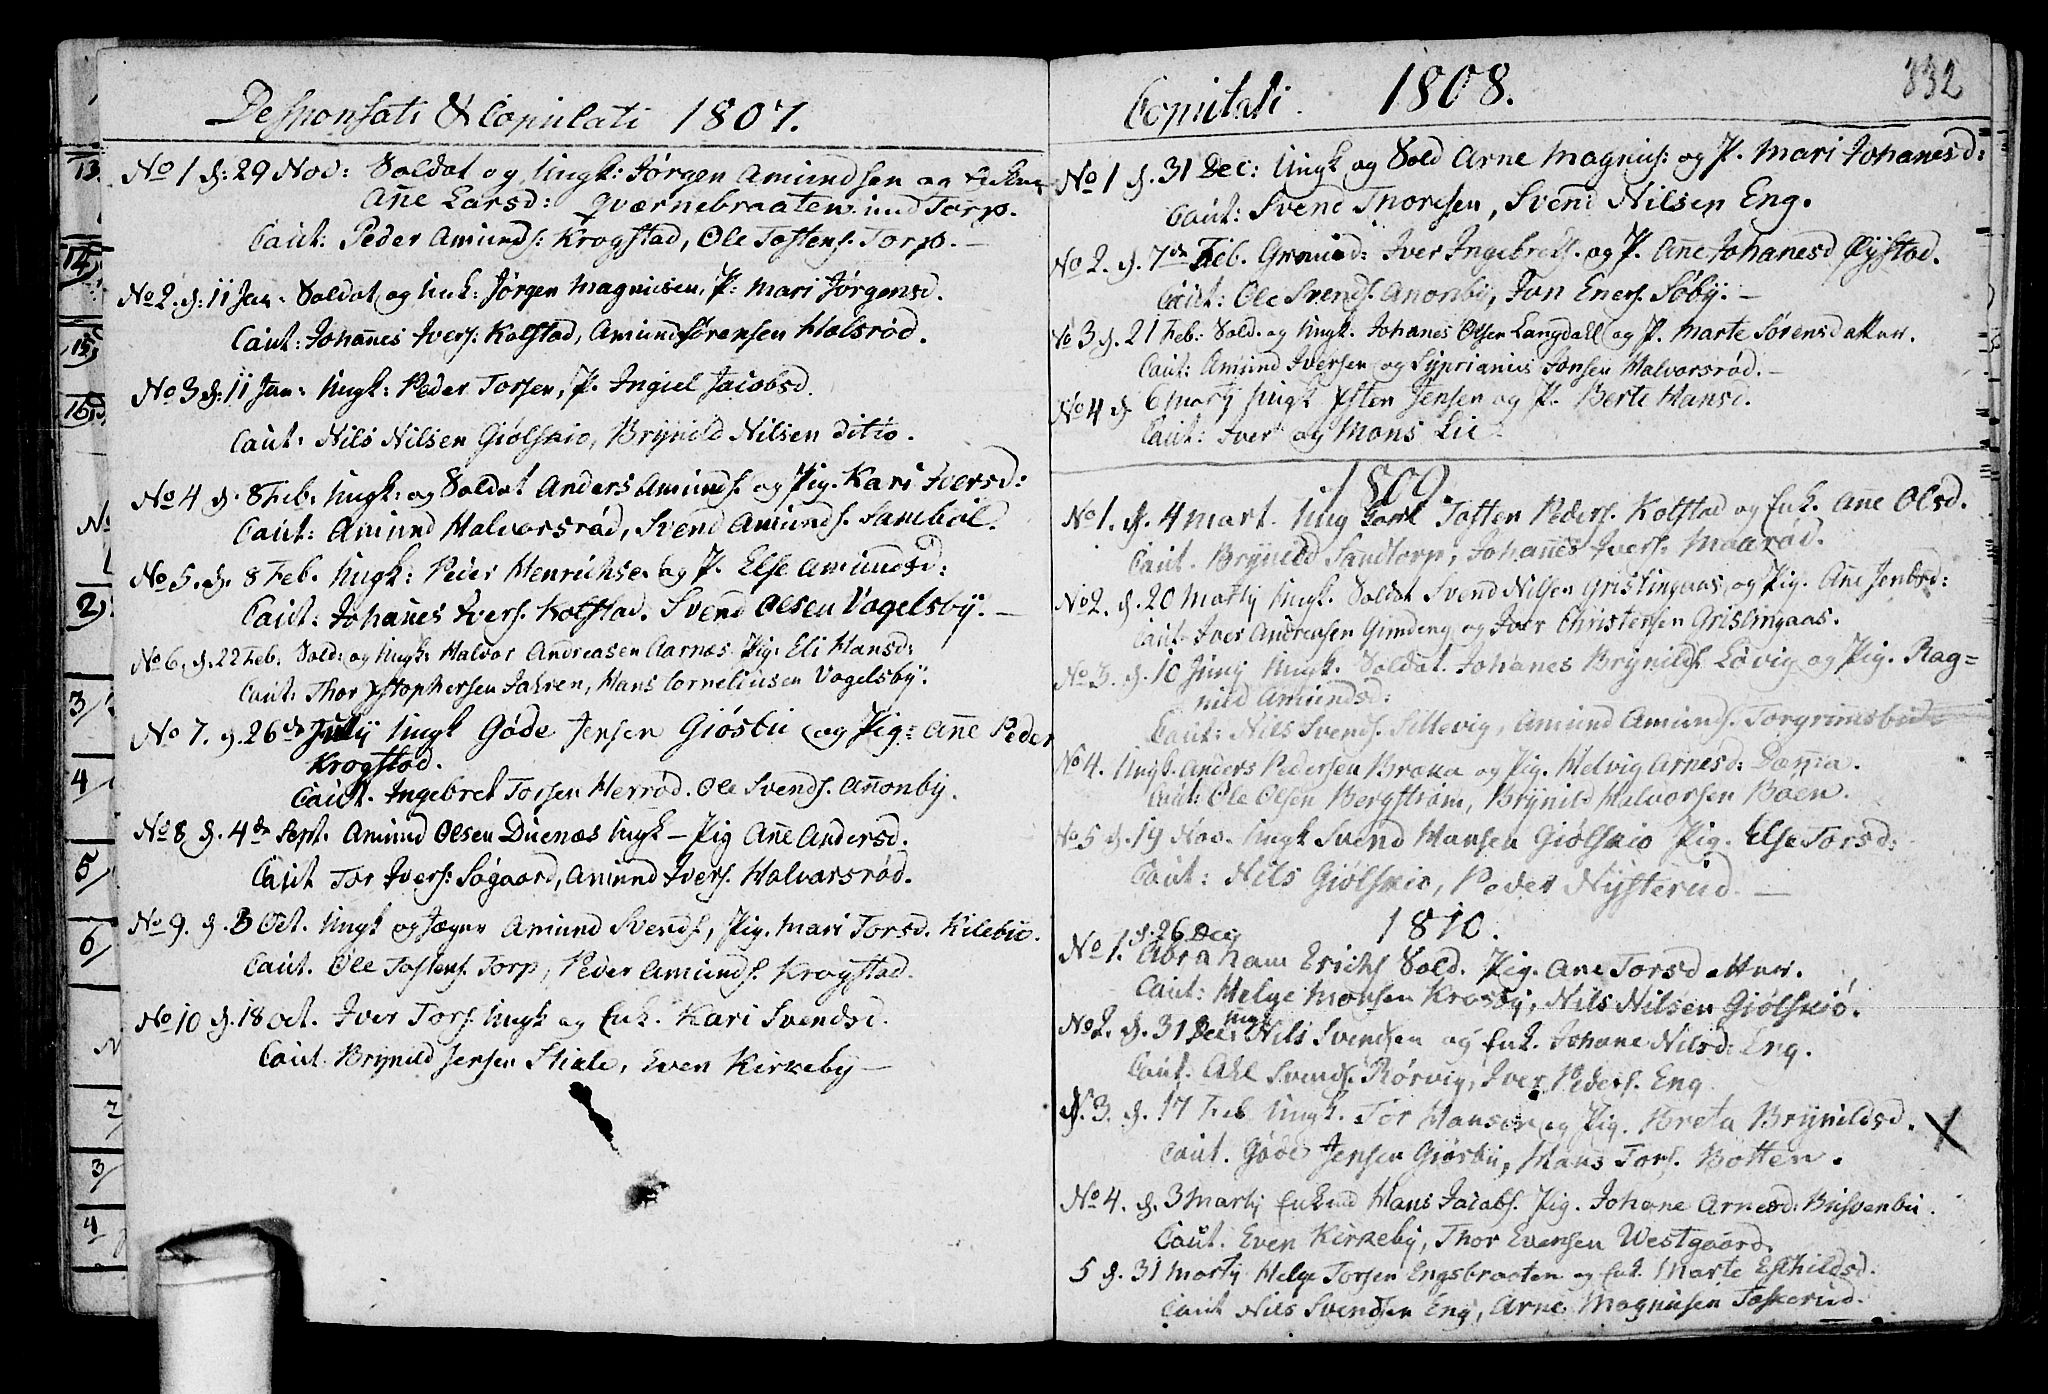 Desponsati & Copulati 1807.
No 1 d: 29 Nov: Soldat og Ungk: Jørgen Amundsen og
Añe Larsd: Qværnebraaten und Torp.
Caut: Peder Amunds: Krogstad, Ole Tostens: Torp. —
No 2. d: 11 Jan. Soldat og Unk: Jørgen Magnusen, P: Mari Jørgensd.
Caut: Johañes Ivers: Kolstad, Amund Sørensen Holsrød.
No 3 d: 11 Jan: Ungk: Peder Torsen, P. Ingiel Jacobsd.
Caut: Nils Nilsen Giølsøio, Brynild Nilsen ditio.
No 4 d. 8 Feb. Ungk: og Soldat Anders Amunds. og Pig. Kari Iversd:
Caut: Amund Halvorsrød, Svend Amunds. Sambøl.
No 5. d. 8 Feb. Ungk: Peder Henrichse. og P. Else Amundsd:
Caut: Johañes Ivers. Kolstad. Svend Olsen Vogelsby. —
No 6. d. 22 Feb. Sold: og Ungk: Halvor Andreasen Aarnæs Pig: Eli Hansd:
Caut: Thor Xstophersen Jahren, Hans Cornelius­en Vogelsby.
No 7. d. 26de July Ungk Gøde Jensen Giøsbu og Pig: Añe Peder
Krogstad.
Caut. Ingebret Torsen Herrød. Ole Svends. Añonby.
No 8 d. 4de Sept. Amund Olsen Duenæs Ungk — Pig Añe Andersd.
Caut Tor Ivers: Søgaard, Amund Ivers. Halvorsrød.
No 9. d. 3 Oct. Ungk og Jæger Amund Svends, Pig. Mari Torsd. Kilebu.
Caut. Ole Tostens. Torp, Peder Amunds. Krogstad.
No 10 d. 18 Oct. Iver Tors. Ungk og Enk. Kari Svendsd.
Caut. Brynild Jensen Skiale, Even Kirkeby —
Copulati. 1808.
332
No 1 d. 31 Dec: Ungk og Sold Arne Magnus: og P. Mari Johanesd:
Caut: Svend Thoresen, Svend Nilsen Eng.
No 2. d. 7de Feb. Grmund: Iver Ingebreds. og P. Añe Johanesd Øystad.
Caut: Ole Svends. Anonby, Jon Eners. Søby. —
No 3 d. 21 Feb: Sold. og Ungk. Johanes Olsen Langdall og P. Marte Sørensdatter.
Caut: Amund Iversen og Syprianus Jonsen Halvorsrød. —
No 4 d 6 Marty Ungk Østen Jensen og P. Berte Hansd.
Caut: Iver og Mons Lie
1809.
No 1. d. 4 Mart. Ung Carl Tosten Peders. Kolstad og Enk. Añe Olsd.
Caut. Brynild Sandtorp, Johañes Ivers: Maarød.
No 2. d. 20 Marty Ungk. Soldat Svend Nilsen Grislingaas, og Pig. Añe Jensd:
Caut Iver Andreasen Gimdeng og Iver Christensen Grislingaas.
No 3. d. 10 Juny Ungk. Soldat. Johanes Brynilds. Løvig og Pig. Rag=
nild Amundsd:
Caut: Nils Svends. Sillevig, Amund Amunds. Torgrimsbu
No 4. Ungk. Anders Pedersen Braka og Pig. Helvig Arnesd: Dañia.
Caut: Ole Olsen Bergstrøm, Brynild Halvorsen Boen.
No 5 d. 19 Nov. Ungk Svend Hansen Giølsøio Pig. Else Torsd:
Caut: Nils Giølsøio, Peder Nysterud. —
1810.
d. 26 Dec
No 1. Abraham Erichs Sold. Pig. Ane Torsdatter.
Caut: Helge Monsen Krosby, Nils Nilsen Giølsøiø.
Ungk
No 2. d. 31 Dec: Nils Svendsen og Enk. Johane Nilsd: Eng.
Caut. Axl Svends. Rørvig, Iver Peders. Eng
N. 3. d. 17 Feb Ungk. Tor Hansen og Pig. Kreta Brynildsd. X
Caut. Gøde Jensen Giøsbu, Hans Tors. Botten.
No 4. d. 3 Marty Enkmd Hans Jacobs. Pig. Johane Arnesd:
Caut. Even Kirkeby, Thor Evensen Westgaard.
5 d. 31 Marty Helge Torsen Engsbraaten og Enk. Marte Eskildsd:
Caut Nils Svendsen Eng, Arne Magnusen Toskerud.
13
14
15
16
2
3
4
5
6
2
3
4